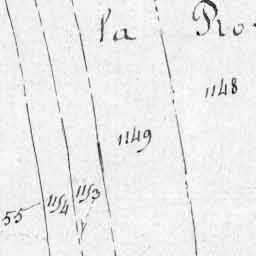 la Ro
1148
1149
1153
1154
55